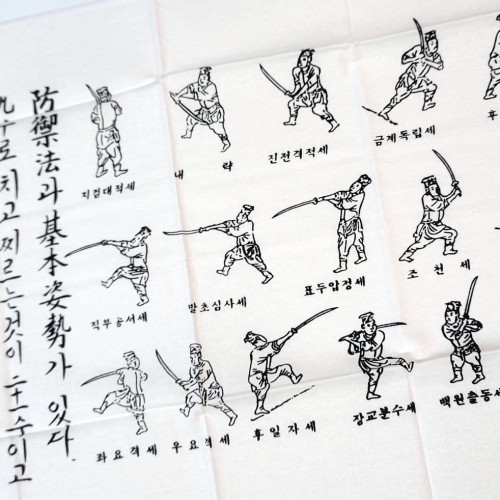 防禦法과 基本姿勢가 있다.
수로 치고 찌르는것이 二十一수이고
지검대적세
내략
진전격적세
금계독립세
후
직부송서세
발초심사세
표두압정세
조천세
좌요격세
우요격세
후일자세
장교분수세
백원출동세